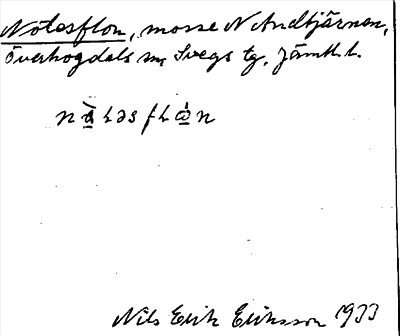 Notesflon, mosse N Andtjärnen,
Överhogdals sn, Svegs tg, Jämtl. l.
Nils Erik Eriksson 1933